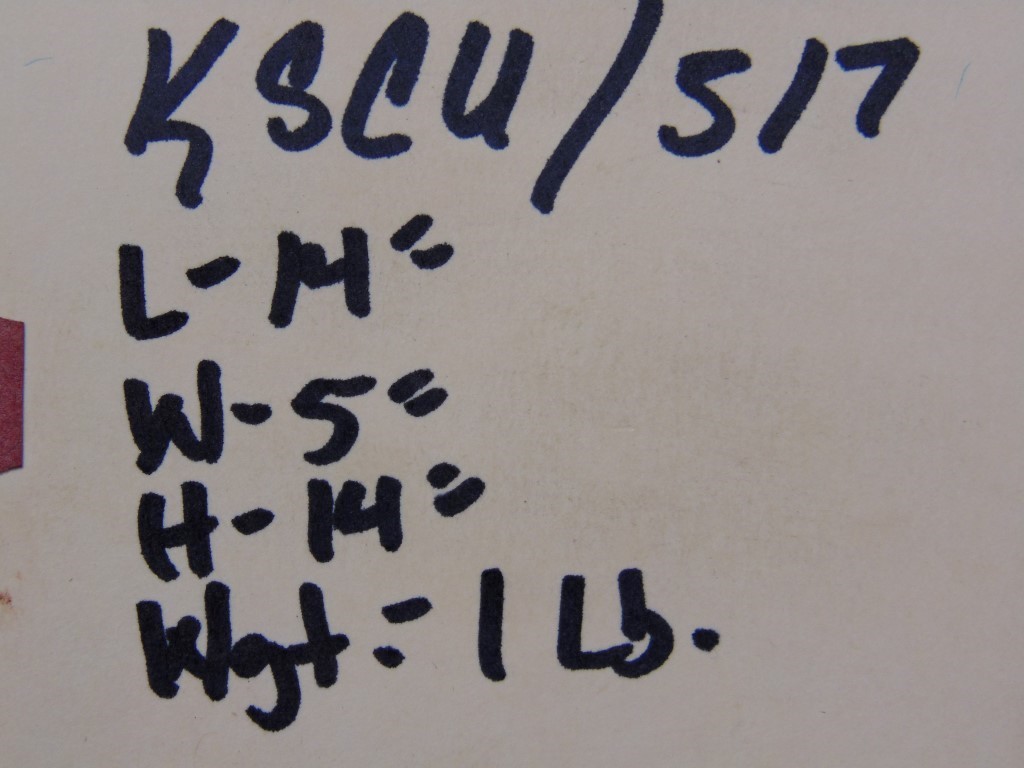 KSCU/517
L-14"
W-5"
H-14"
Wgt: 1 Lb.